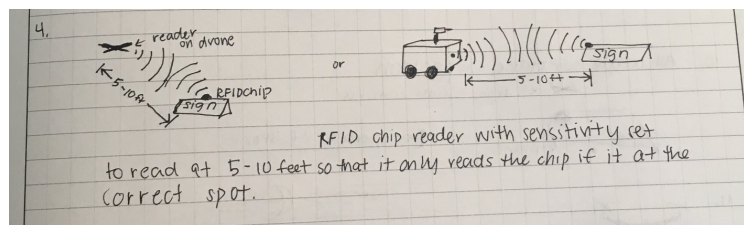 4.
reader
on drone
5-10ft
RFID chip
sign
or
5-10ft
sign
RFID chip reader with sensitivity set
to read at 5-10 feet so that it only reads the chip if it at the
correct spot.